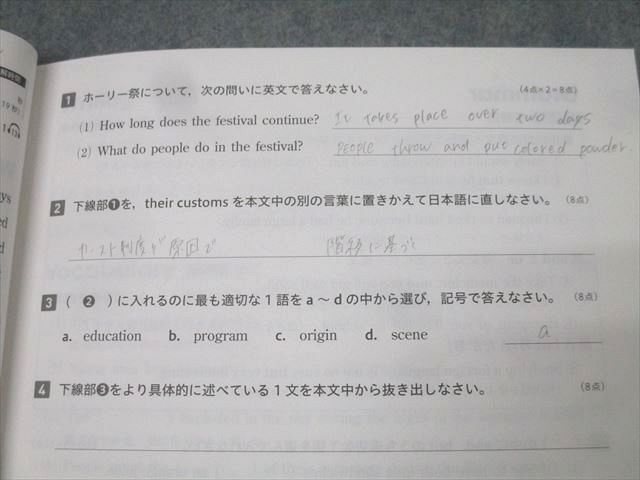 1 ホーリー祭について，次の問いに英文で答えなさい。 (4点×2=8点)
(1) How long does the festival continue? It takes place over two days
(2) What do people do in the festival? People throw and put colored powder.
2 下線部❶を，their customs を本文中の別の言葉に置きかえて日本語に直しなさい。 (8点)
カースト制度が原因で 階級に基づく
3 ( ❷ )に入れるのに最も適切な1語をa～dの中から選び，記号で答えなさい。 (8点)
a. education b. program c. origin d. scene a
4 下線部❸をより具体的に述べている1文を本文中から抜き出しなさい。 (8点)